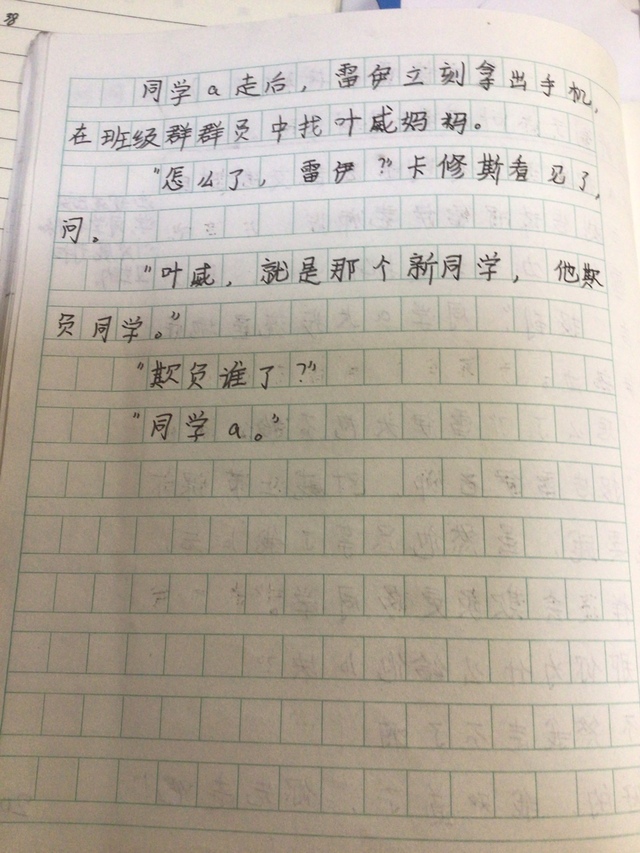 同学a走后，雷伊立刻拿出手机，
在班级群群员中找叶威妈妈。
“怎么了，雷伊？”卡修斯看见了，
问。
“叶威，就是那个新同学，他欺
负同学。”
“欺负谁了？”
“同学a。”